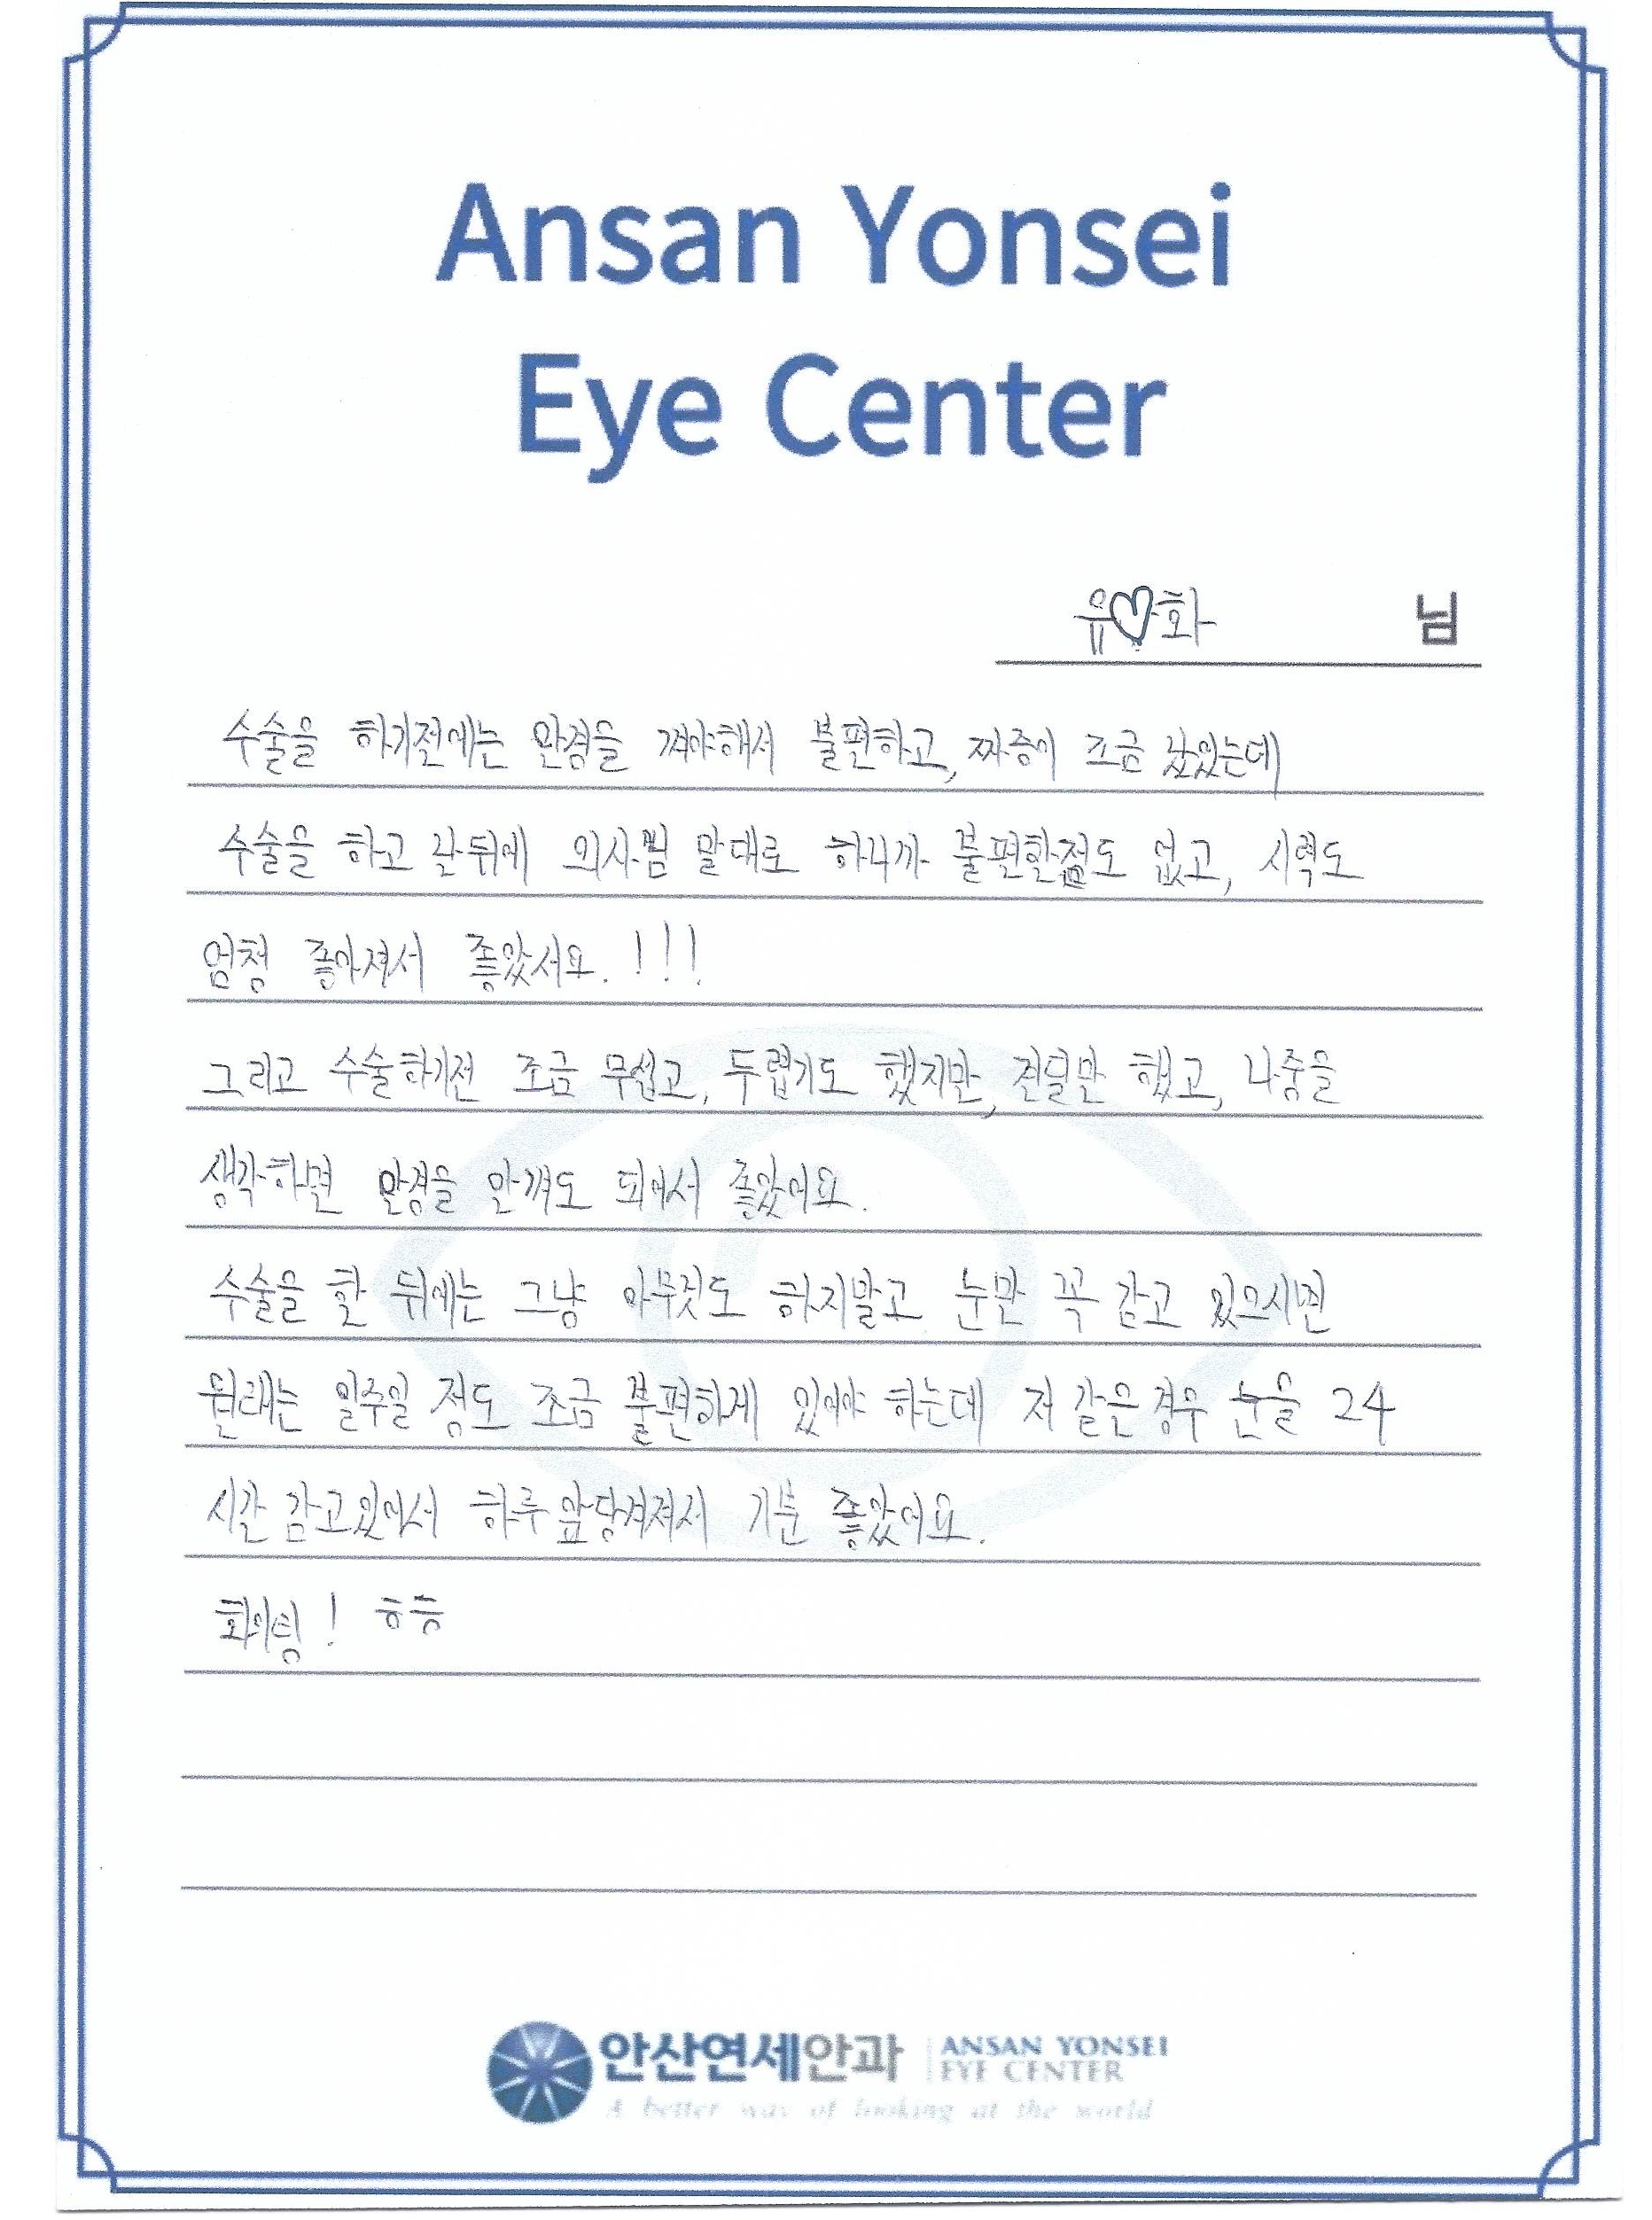 Ansan Yonsei
Eye Center
유♡화 님
수술을 하기전에는 안경을 껴야해서 불편하고, 짜증이 조금 났었는데
수술을 하고 난뒤에 의사님 말대로 하니까 불편한점도 없고, 시력도
엄청 좋아져서 좋았서요. !!!
그리고 수술하기전 조금 무섭고, 두렵기도 했지만, 견딜만 했고, 나중을
생각하면 안경을 안껴도 되어서 좋았어요.
수술을 한 뒤에는 그냥 아무것도 하지말고 눈만 꼭 감고 있으시면
원래는 일주일 정도 조금 불편하게 있어야 하는데 저 같은경우 눈을 24
시간 감고있어서 하루 앞당겨져서 기분 좋았어요.
화이팅! ㅎㅎ
안산연세안과 ANSAN YONSEI
EYE CENTER
A better way of looking at the world